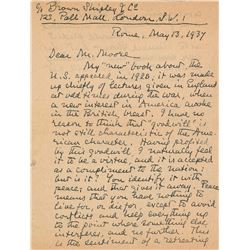 c/o Brown Shipley & Co
123, Pall Mall, London, S.W.1
Rome, May 13, 1937
Dear Mr. Moore
My "new" book about the
U.S. appeared in 1920, it was made
up chiefly of lectures given in England
at odd times during the war, when a
new interest in America awoke
in the British breast. I have no
reason to think that "goodwill" is
not still characteristic of the Ame-
rican character. Having profited
by this goodwill I naturally feel
it to be a virtue, and it is accepted
as a compliment to the nation:
but is it? You identify it with
peace; and that gives it away. Peace
means that you have nothing to
live for, or die for except to avoid
conflicts, and keep everything up
to the point where something else
interferes, and no further. This
is the sentiment of a retreating